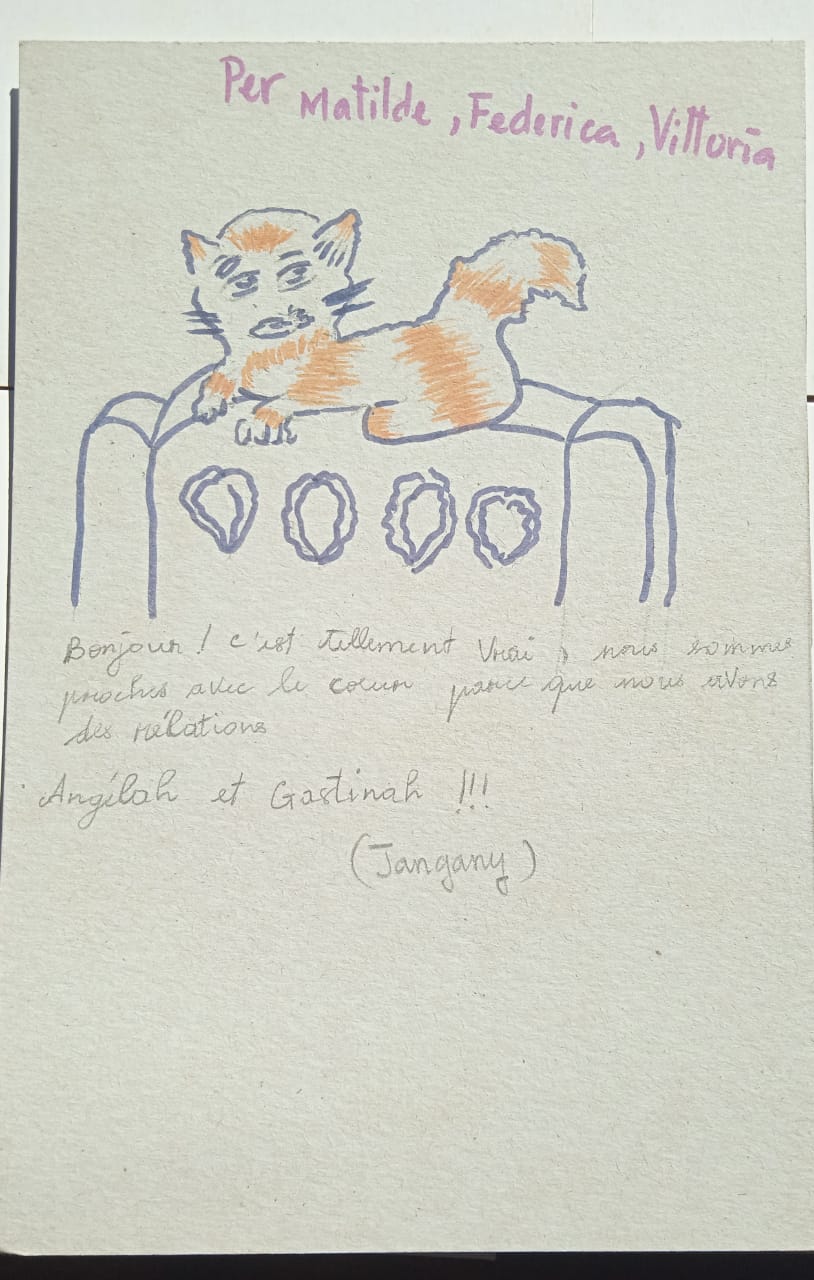 Per Matilde, Federica, Vittoria
Bonjour! c'est tellement vrai, nous sommes
proches avec le coeur parce que nous avons
des rélations
Angélah et Gastinah !!!
(Jangany)